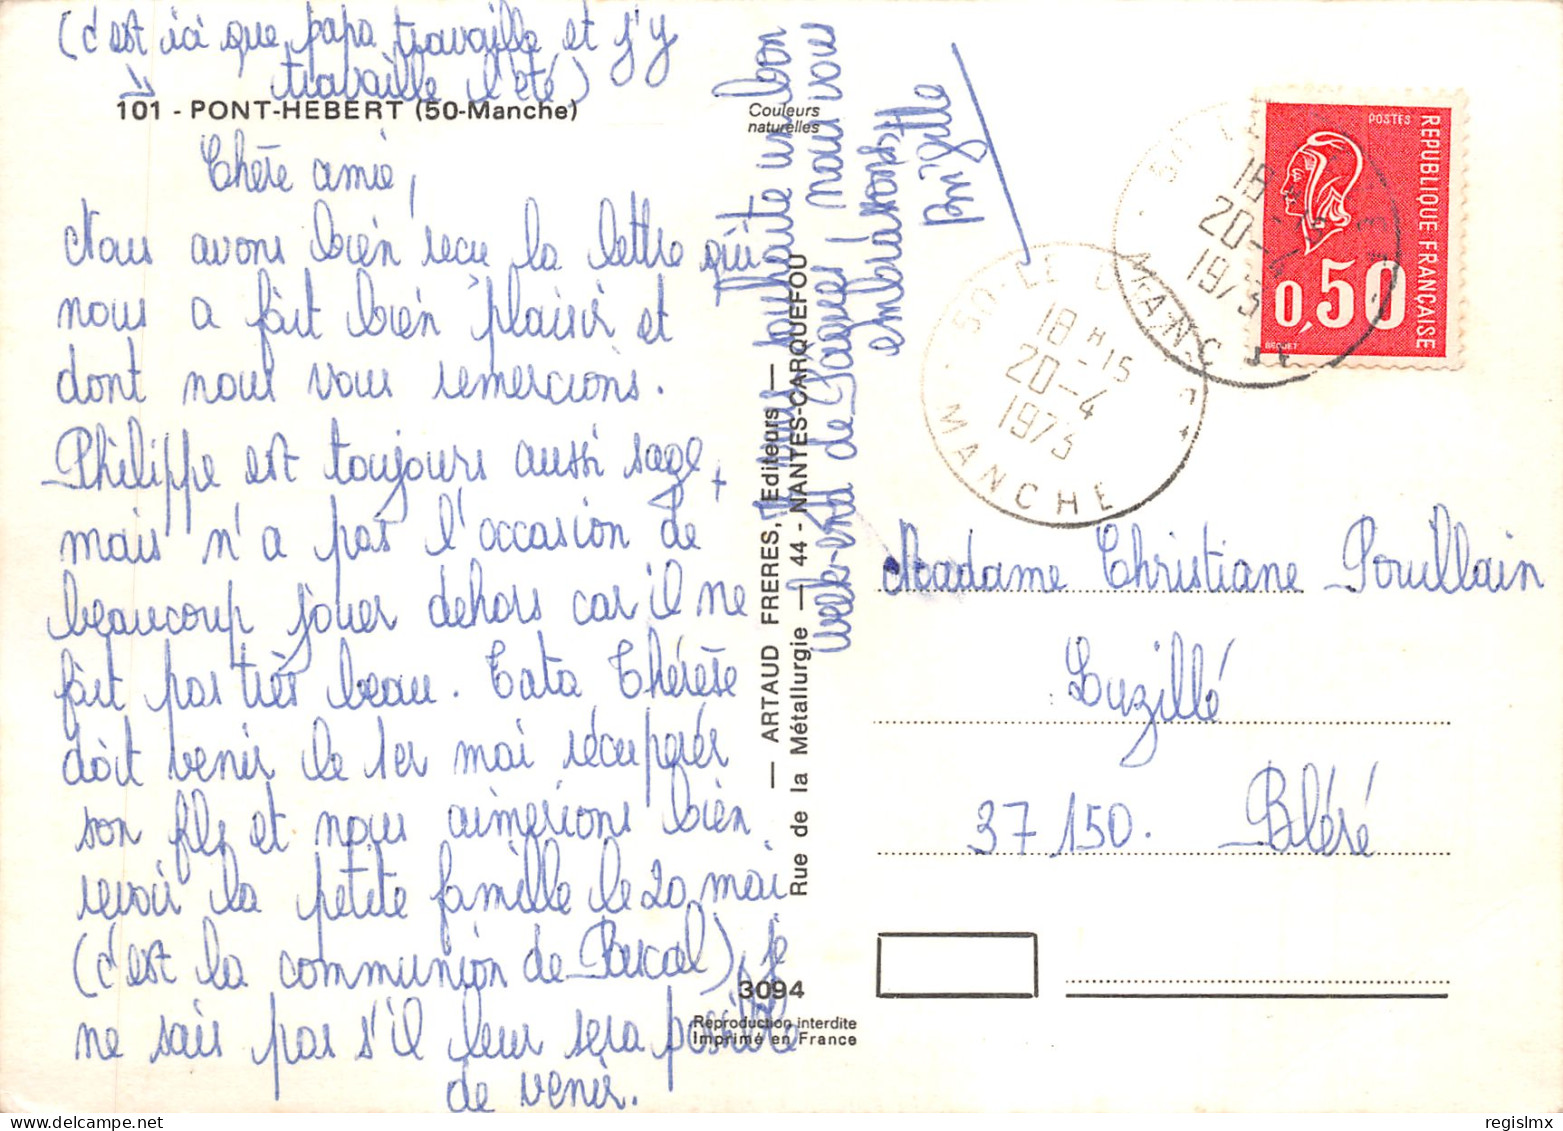 (c'est ici que papa travaille et j'y
travaille l'été)
101 - PONT-HEBERT (50-Manche)
Couleurs
naturelles
Chère amie,
Nous avons bien reçu la lettre qui
nous a fait bien plaisir et
dont nous vous remercions.
Philippe est toujours aussi sage,
mais n'a pas l'occasion de
beaucoup jouer dehors car il ne
fait pas très beau. Tata Thérèse
doit venir le 1er mai récupérer
son fils et nous aimerions bien
revoir la petite famille le 20 mai
(c'est la communion de Pascal), je
ne sais pas s'il leur sera possible
de venir.
vous souhaite un bon
week-end de Pâques, nous vous
embrassons
Brigitte
— ARTAUD FRERES, Editeurs —
Rue de la Métallurgie — 44 - NANTES-CARQUEFOU
3094
Reproduction interdite
Imprimé en France
50-LE
18 H 15
20-4
1973
MANCHE
50-LE
18 H
20-4
1973
MANCHE
POSTES
REPUBLIQUE FRANÇAISE
0,50
BEQUET
Madame Christiane Pouillain
Luzillé
37150. Bléré
regislmx